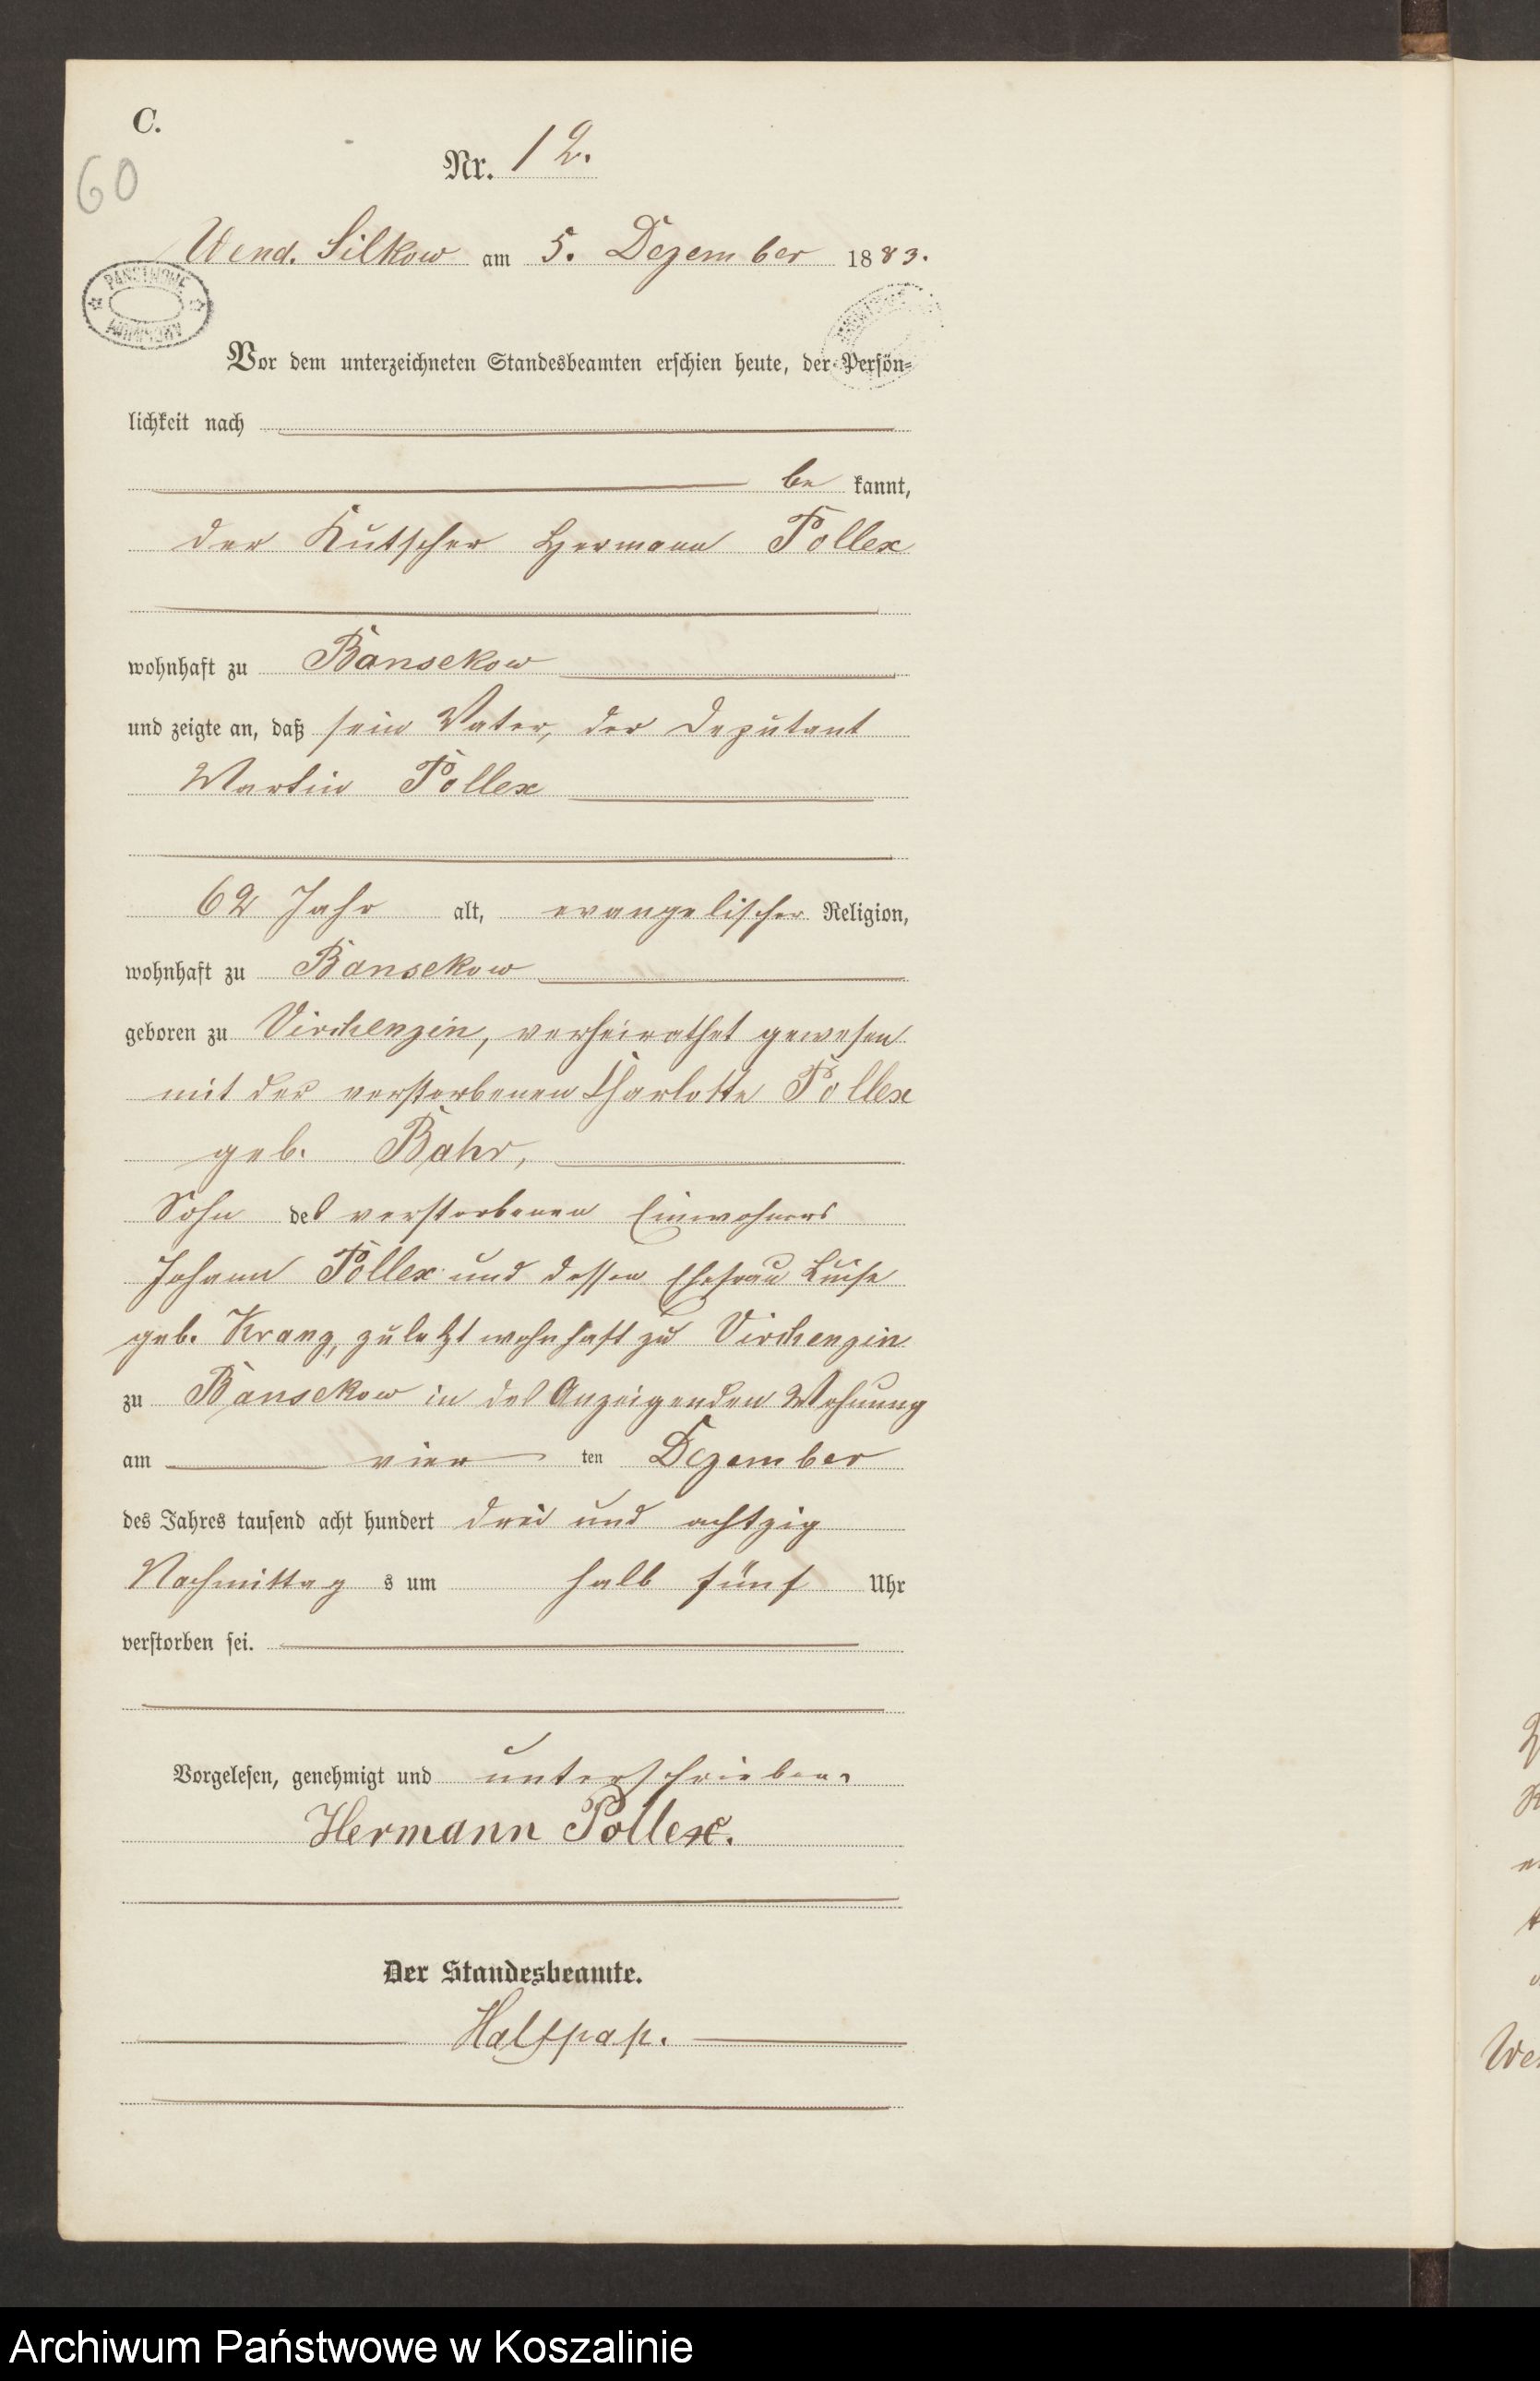 C.
60
Nr. 12.
Wend. Silkow am 5. Dezember 1883.
PAŃSTWOWE
Vor dem unterzeichneten Standesbeamten erschien heute, der Persön-
lichkeit nach
be kannt,
der Kutscher Hermann Pollex
wohnhaft zu Bansekow
und zeigte an, daß sein Vater, der Deputant
Martin Pollex
62 Jahr alt, evangelischer Religion,
wohnhaft zu Bansekow
geboren zu Virchenzin, verheirathet gewesen
mit der verstorbenen Charlotte Pollex
geb. Bahr,
Sohn des verstorbenen Einwohners
Johann Pollex und dessen Ehefrau Luise
geb. Kranz, zuletzt wohnhaft zu Virchenzin
zu Bansekow in des Anzeigenden Wohnung
am vier ten Dezember
des Jahres tausend acht hundert drei und achtzig
Nachmittag s um halb fünf Uhr
verstorben sei.
Vorgelesen, genehmigt und unterschrieben.
Hermann Pollex.
Der Standesbeamte.
Halfpap.
Archiwum Państwowe w Koszalinie